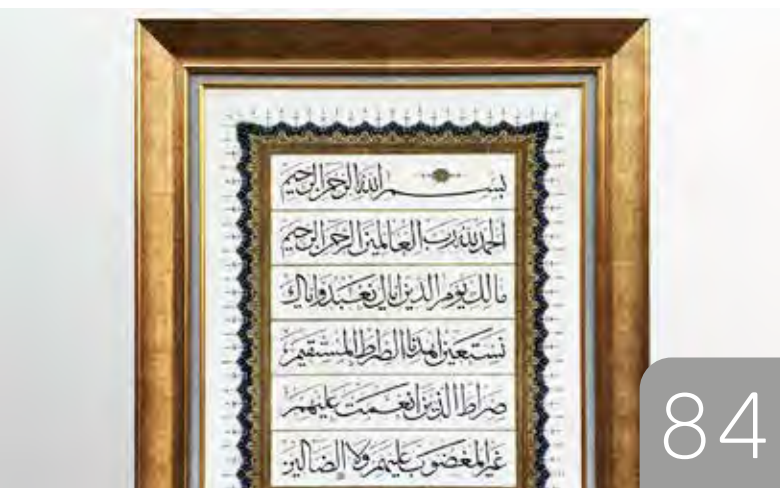 بسم الله الرحمن الرحيم
الحمد لله رب العالمين الرحمن الرحيم
مالك يوم الدين اياك نعبد واياك
نستعين اهدنا الصراط المستقيم
صراط الذين انعمت عليهم
غير المغضوب عليهم ولا الضالين
84